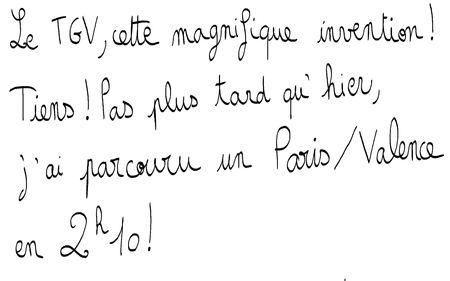 Le TGV, cette magnifique invention!
Tiens! Pas plus tard qu'hier,
j'ai parcouru un Paris/Valence
en 2h10!